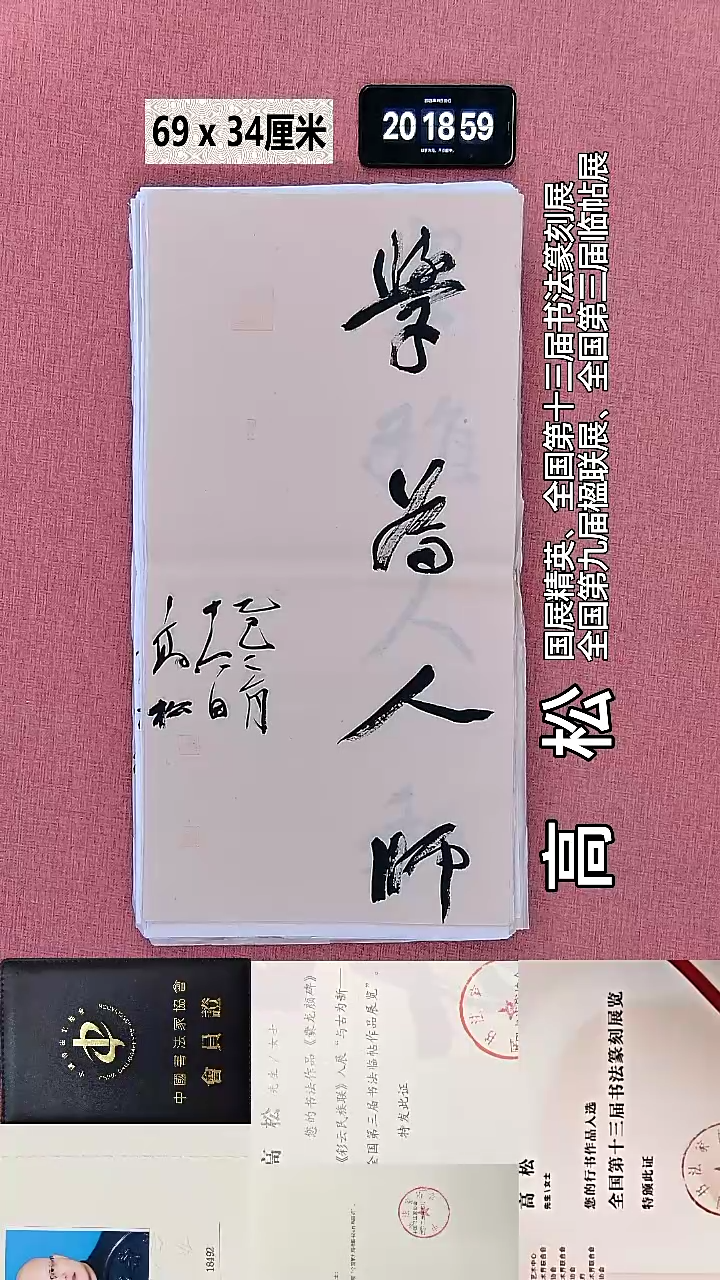 69 x 34厘米
20 18 59
學為人人師
乙巳二月
十六日
高松
国展精英、全国第十三届书法篆刻展
全国第九届楹联展、全国第三届临帖展
高 松
中國書法家協會
會員證
高 松 先生/女士
您的书法作品《爨龙颜碑》
《彩云民族联》入展“与古为新—
全国第三届书法临帖作品展览”。
特发此证
高 松 先生\女士
您的行书作品入选
全国第十三届书法篆刻展览
特颁此证
18492